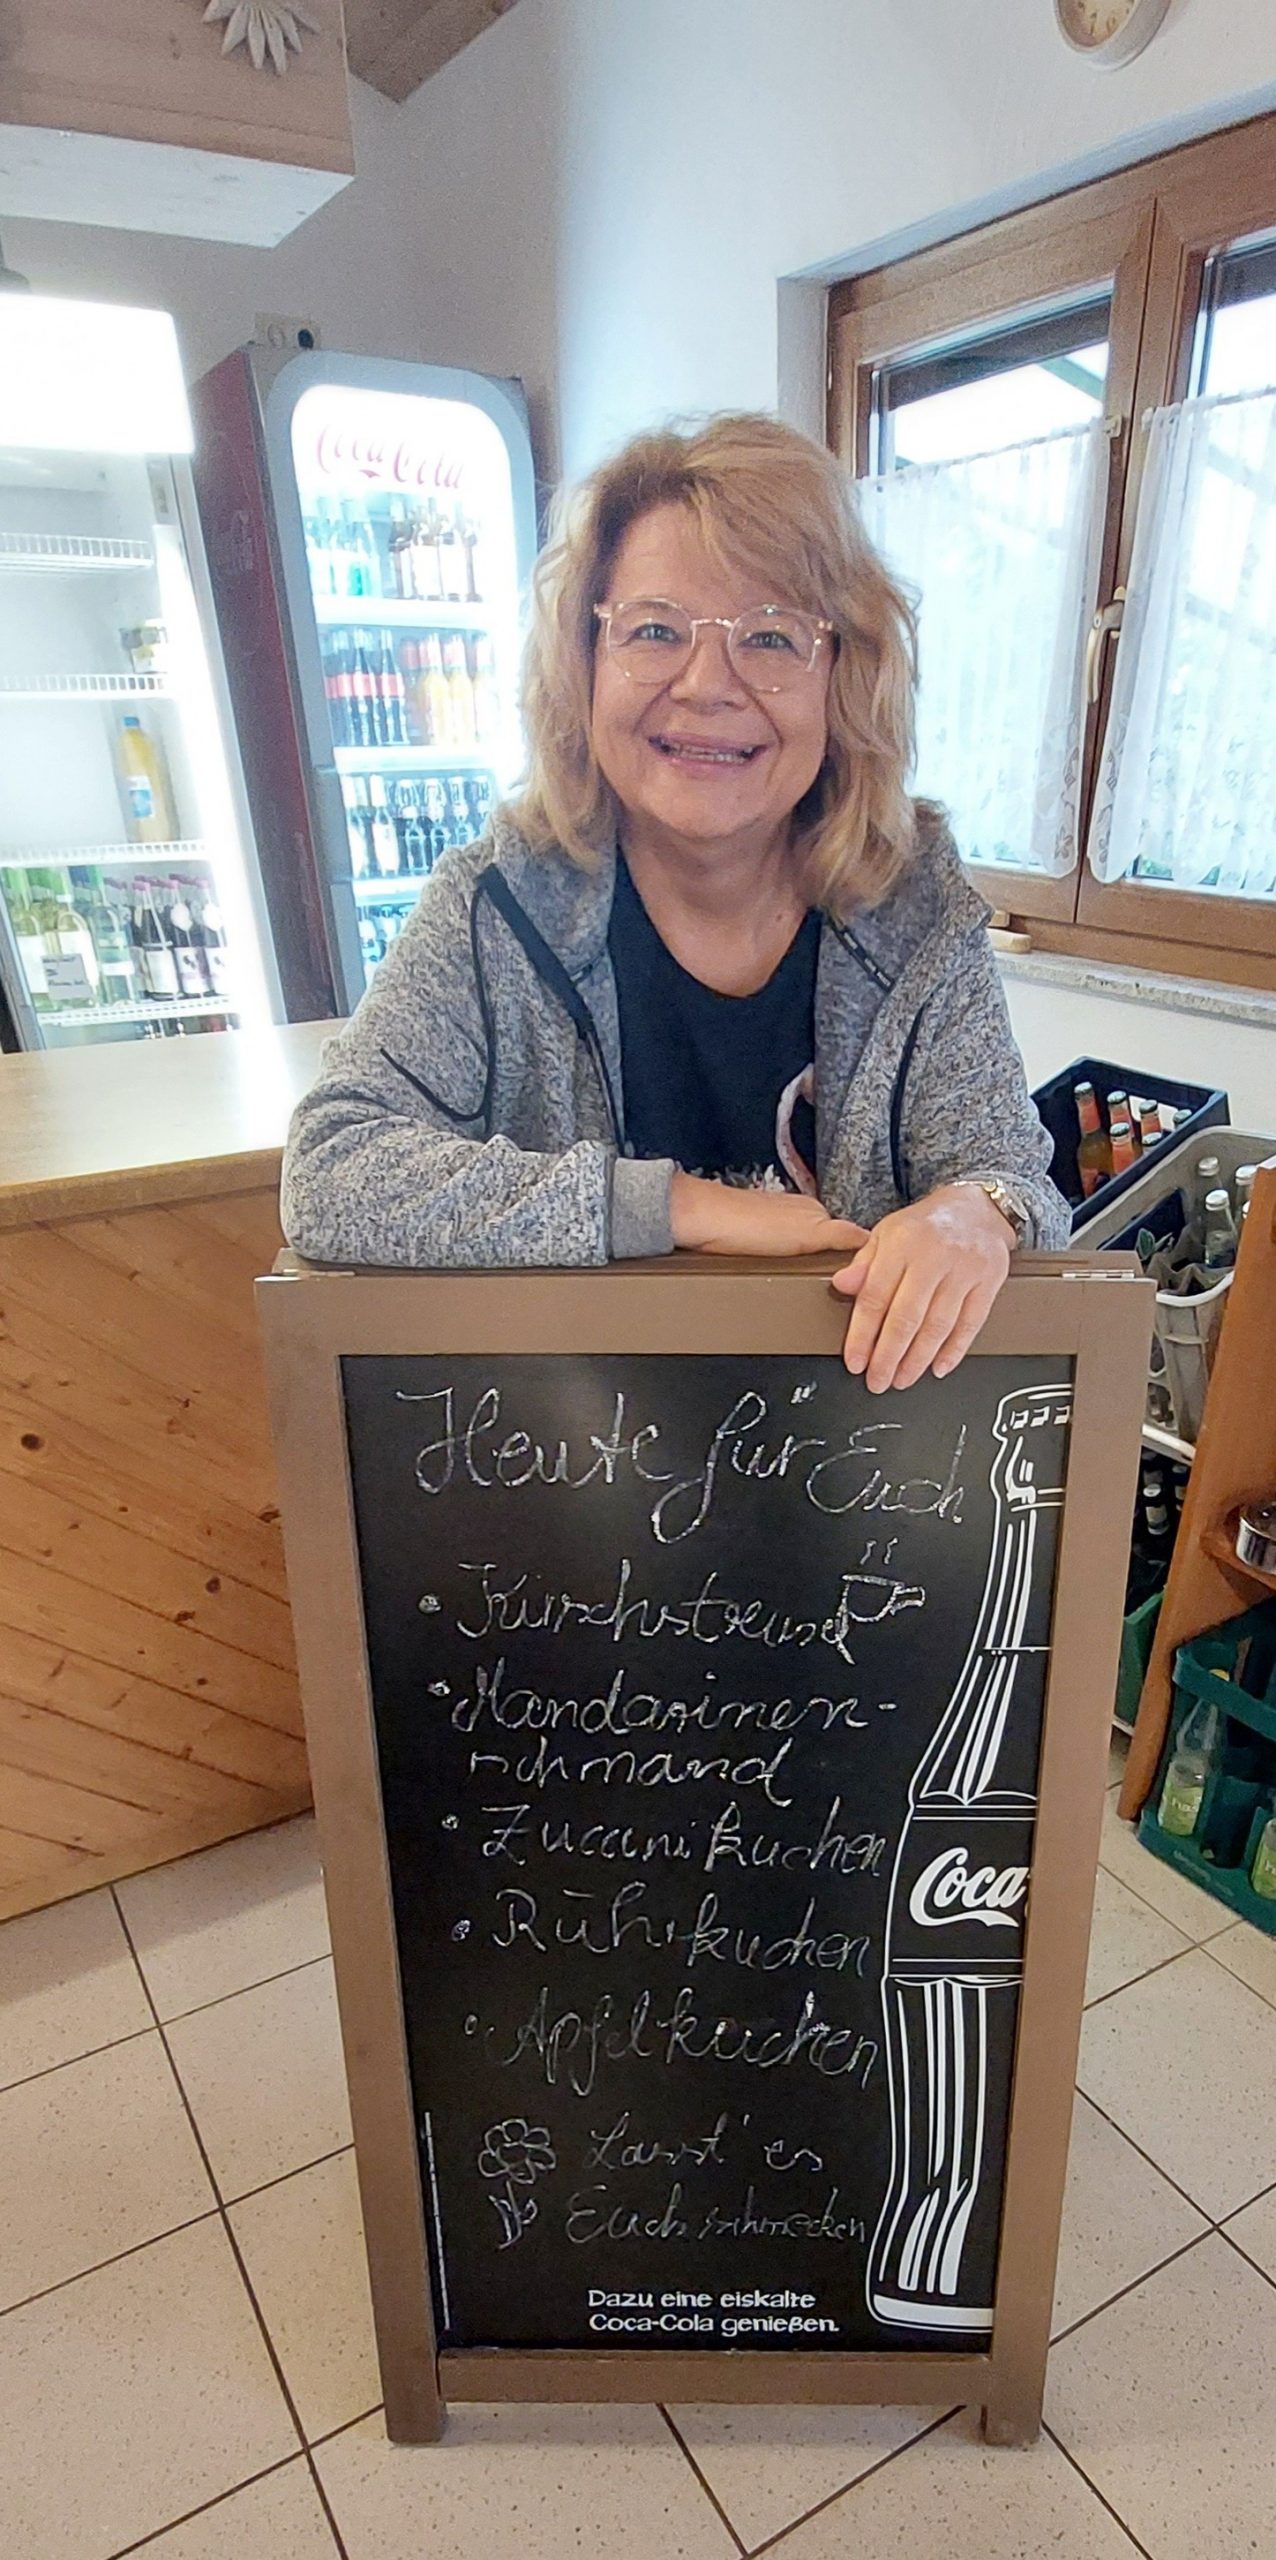 Coca-Cola
Heute für Euch
• Kirschstreusel
• Mandarinen-
schmand
• Zuccinikuchen
• Rührkuchen
• Apfelkuchen
Lasst' es
Euch schmecken
Coca
Dazu eine eiskalte
Coca-Cola genießen.